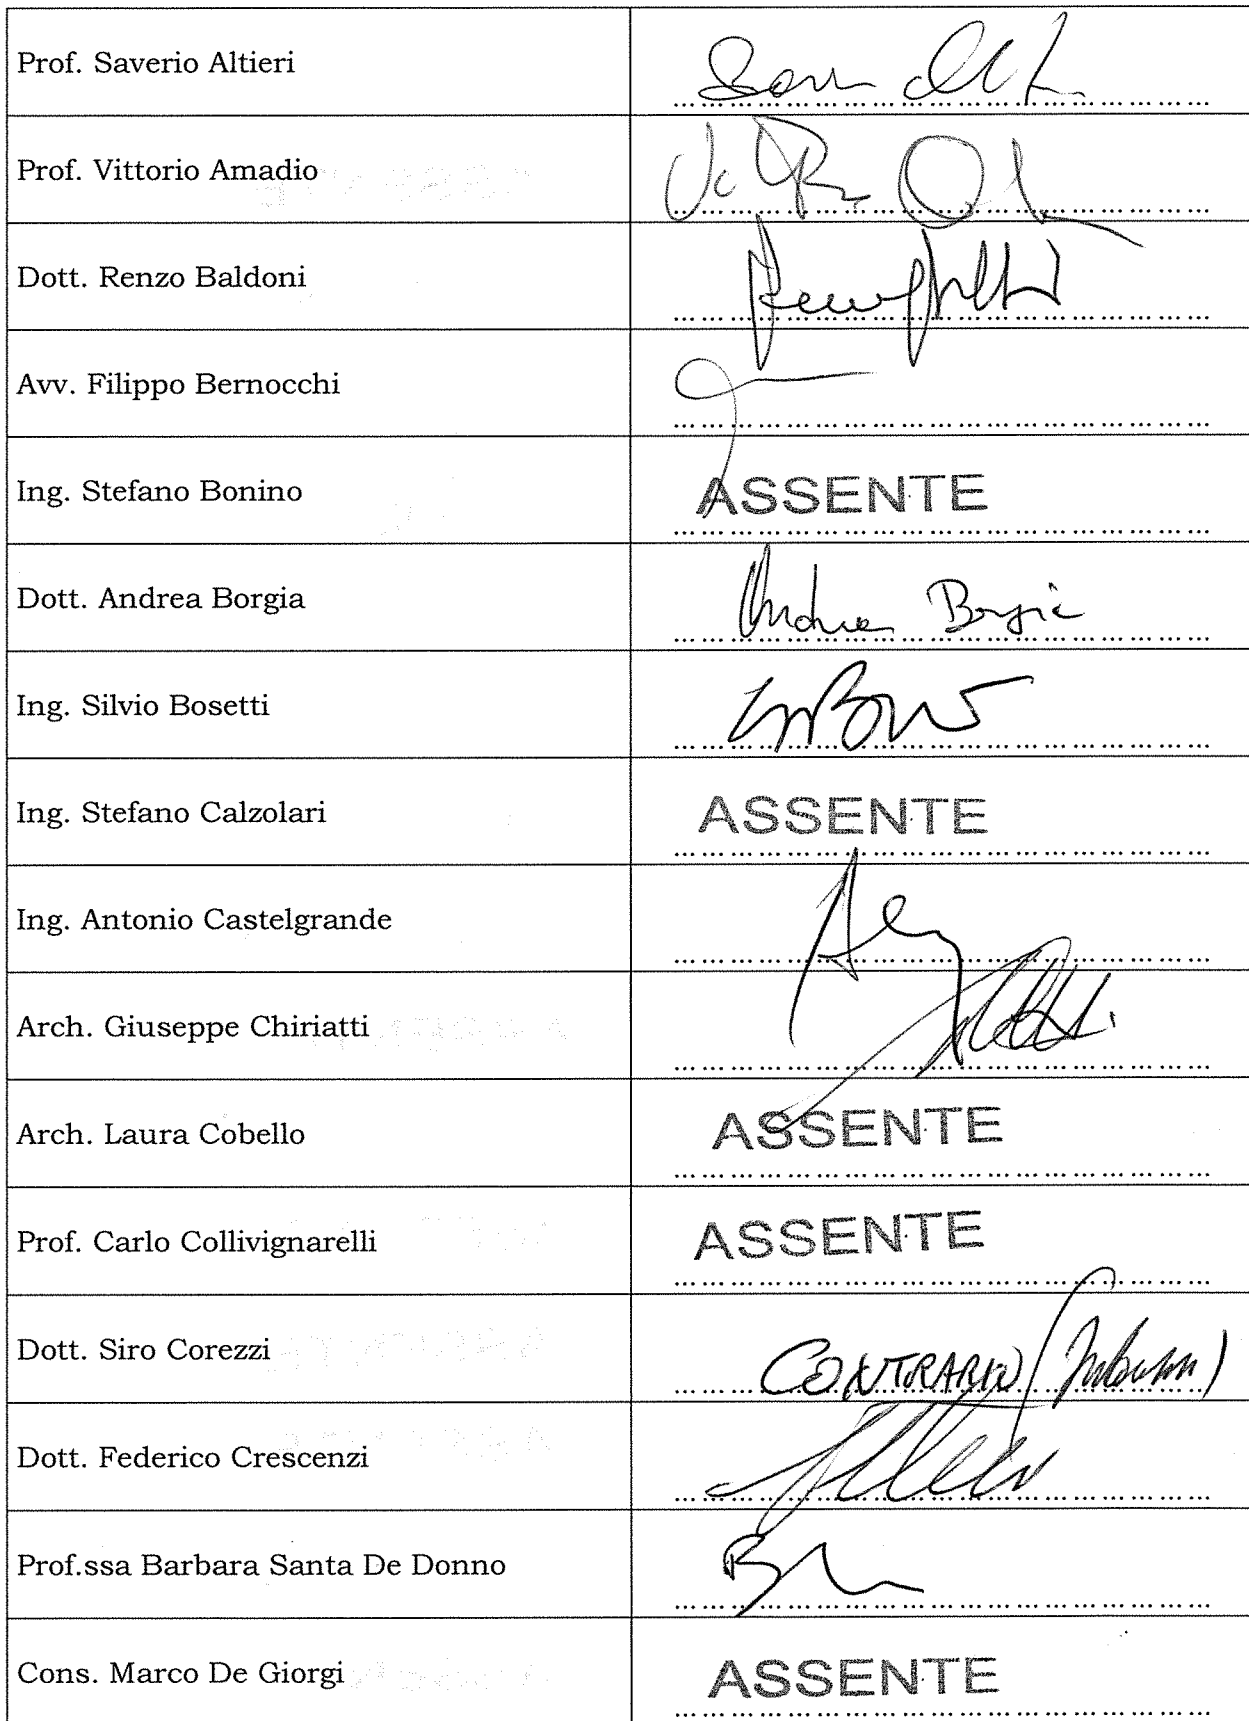 Prof. Saverio Altieri
Prof. Vittorio Amadio
Dott. Renzo Baldoni
Avv. Filippo Bernocchi
Ing. Stefano Bonino ASSENTE
Dott. Andrea Borgia Andrea Borgia
Ing. Silvio Bosetti
Ing. Stefano Calzolari ASSENTE
Ing. Antonio Castelgrande
Arch. Giuseppe Chiriatti
Arch. Laura Cobello ASSENTE
Prof. Carlo Collivignarelli ASSENTE
Dott. Siro Corezzi CONTRARIO
Dott. Federico Crescenzi
Prof.ssa Barbara Santa De Donno
Cons. Marco De Giorgi ASSENTE